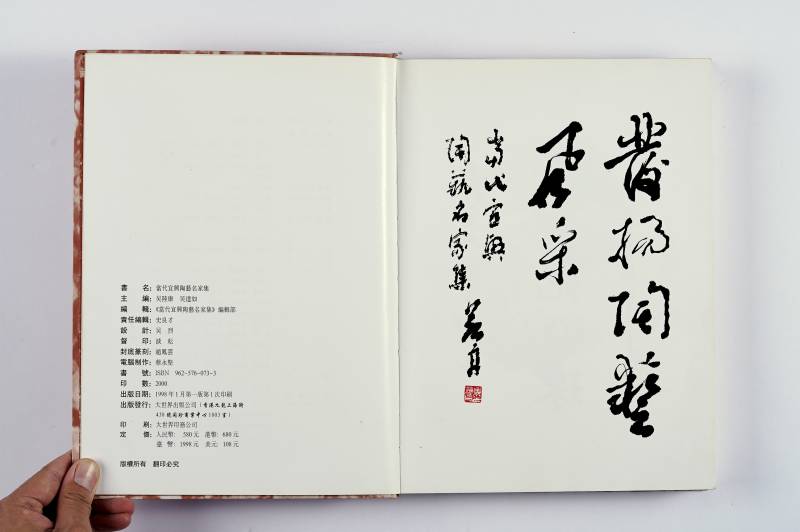 書　名：當代宜興陶藝名家集
主　編：吳陸康　吳達如
編　輯：《當代宜興陶藝名家集》編輯部
責任編輯：史良才
設　計：吳　烈
督　印：談　彪
封底篆刻：趙鳳芸
電腦制作：蔡永堅
書　號：ISBN　962-576-073-3
印　數：2000
出版日期：1998年1月第一版第1次印刷
出版發行：大世界出版公司（香港九龍上海街
438號同珍商業中心1803室）
印　刷：大世界印務公司
定　價：人民幣：580元　港幣：680元
臺　幣：1998元　美元：108元
版權所有　翻印必究
發揚陶藝
風采
當代宜興
陶藝名家集